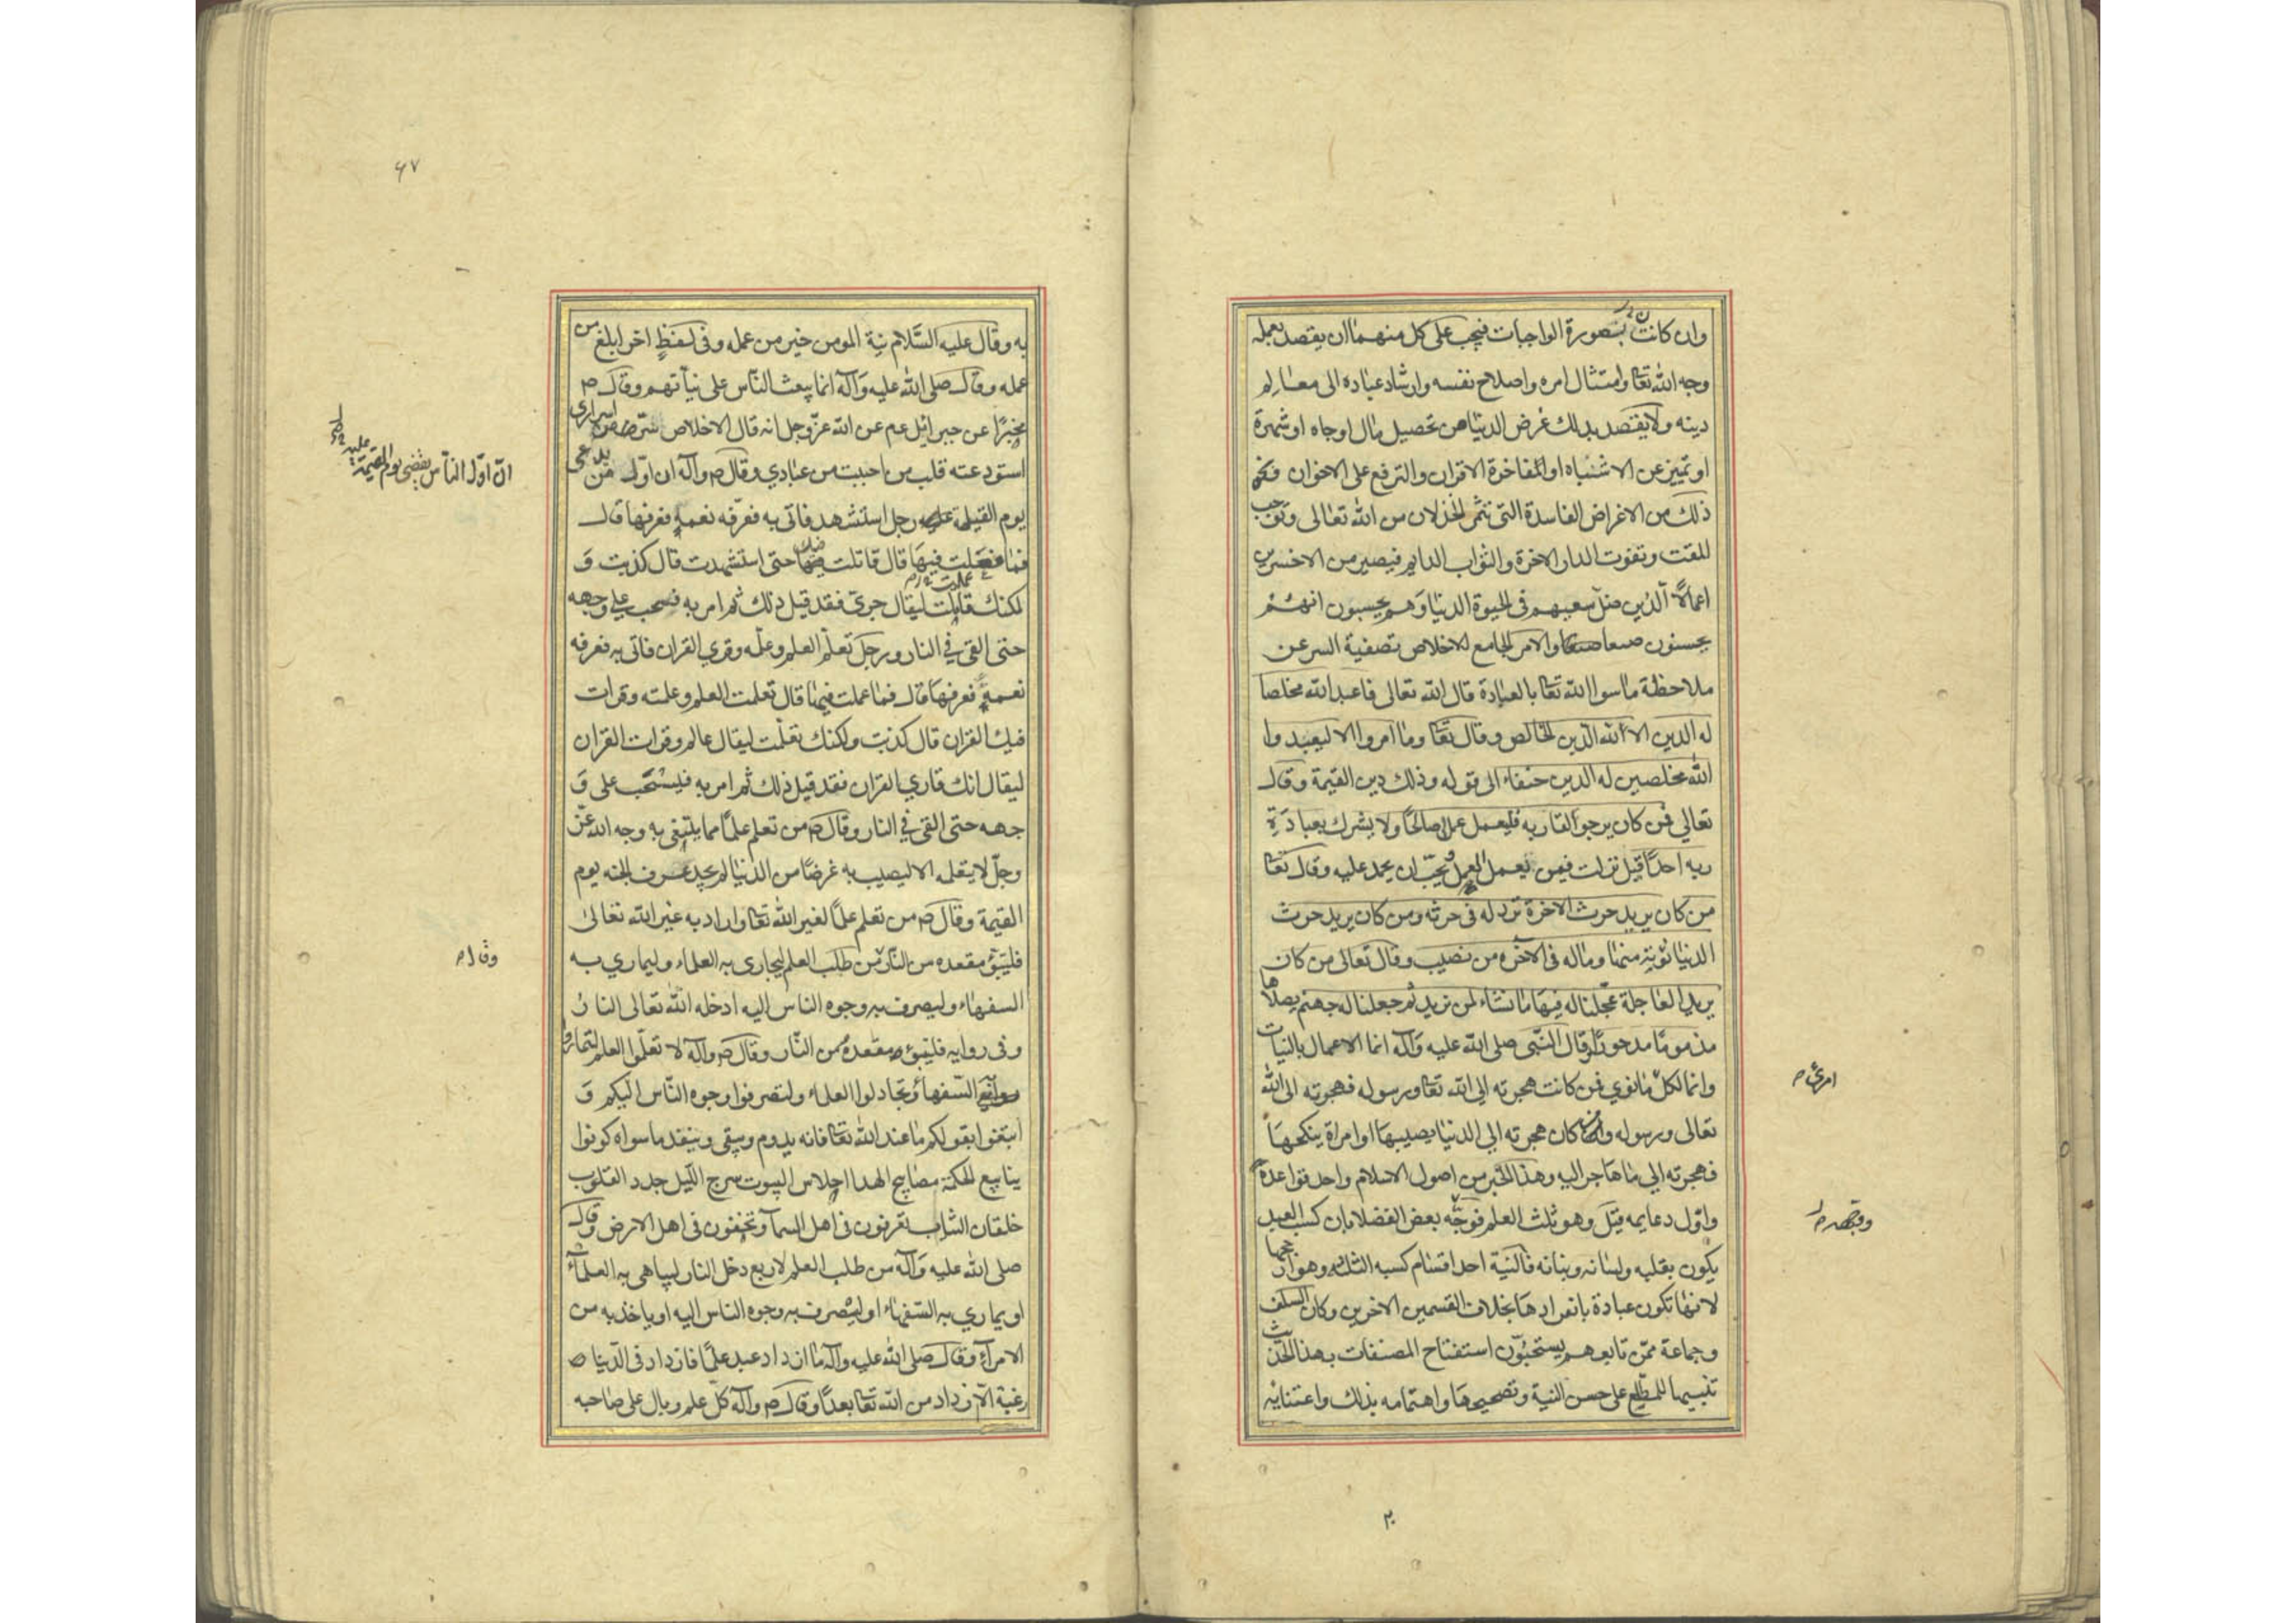 وان كانت بصورة الواجبات فيجب على كل منهما ان يقصد بعمله
وجه الله تعا وامتثال امره واصلاح نفسه وارشاد عباده الى معالم
دينه ولا يقصد بذلك غرض الدنيا من تحصيل مال او جاه او شهرة
او تميز عن الاشباه او المفاخرة الاقران والترفع على الاخوان ونحو
ذلك من الاغراض الفاسدة التى تثمر الخذلان من الله تعالى وتوجب
للمقت وتفوت الدار الاخرة والثواب الدايم فيصير من الاخسرين
اعمالا الذين ضل سعيهم فى الحيوة الدنيا وهم يحسبون انهم
يحسنون صنعا والامر الجامع للاخلاص تصفية السر عن
ملاحظة ما سوا الله تعا بالعبادة قال الله تعالى فاعبد الله مخلصا
له الدين الا لله الدين الخالص وقال تعا وما امروا الا ليعبدوا
الله مخلصين له الدين حنفاء الى قوله وذلك دين القيمة وقال
تعالي فمن كان يرجوا لقا ربه فليعمل عملا صالحًا ولا يشرك بعبادة
ربه احدًا قيل نزلت فيمن يعمل العمل ويحب ان يحمد عليه وقال تعا
من كان يريد حرث الاخرة نزد له فى حرثه ومن كان يريد حرث
الدنيا نؤته منها وماله فى الآخره من نصيب وقال تعالى من كان
يريد العاجلة عجلنا له فيها ما نشاء لمن نريد ثم جعلنا له جهنم يصلاها
مذمومًا مدحورًا وقال النبى صلى الله عليه وآله انما الاعمال بالنيات
وانما لكل ما نوي فمن كانت هجرته الي الله تعا ورسوله فهجرته الى الله
امرئ م
تعالى ورسوله ومن كان هجرته الي الدنيا يصيبها او امراة ينكحها
فهجرته الي ما هاجر اليه وهذا الخبر من اصول الاسلام واحد قواعده
واوّل دعايمه قيل وهو ثلث العلم فوجّه بعض الفضلا بان كسب العبد
يكون بقلبه ولسانه وبنانه فالنية احد اقسام كسبه الثلث وهو ارجحها
لانها تكون عبادة بانفرادها بخلاف القسمين الاخرين وكان السلف
وجماعة ممّن تابعوهم يستحبّون استفتاح المصنفات بهذا الحديث
تنبيها للمطّلع على حسن النية وتصحيحها واهتمامه بذلك واعتنائه
۶۷
به وقال عليه السّلام نية المومن خير من عمله وفى لفظٍ اخر ابلغ من
عمله وقال صلى الله عليه وآله انما يبعث النّاس على نيّاتهم وقال م
مخبرًا عن جبرائيل عم عن الله عزّ وجل انه قال الاخلاص سّر من اسرارى
استودعته قلب من احببت من عبادي وقال م وآله ان اوّل من يدعى
انّ اوّل النّاس يقضى يوم القيمة عليه
يوم القيمة عليه رجل استشهد فاتى به فعرّفه نعمه فعرفها قال
فما فعلت فيها قال قاتلت فيك حتى استشهدت قال كذبت و
لكنك قاتلت ليقال جرئ فقد قيل ذلك ثم امر به فسحب على وجهه
حتى القى في النار ورجل تعلّم العلم وعلّمه وقرئ القران فاتى به فعرفه
نعمه فعرفها قال فما عملت فيها قال تعلمت العلم وعلمته وقرات
فيك القران قال كذبت ولكنك تعلّمت ليقال عالم وقرات القران
ليقال انك قاري القران فقد قيل ذلك ثم امر به فليسحب على و
جهه حتى القى في النار وقال م من تعلم علمًا مما يبتغى به وجه الله عزّ
وجلّ لا يتعلمه الا ليصيب به غرضًا من الدنيا لم يجد عرف الجنه يوم
القيمة وقال م من تعلم علمًا لغير الله تعا واراد به غير الله تعالى
فليتبوّء مقعده من النّار من طلب العلم ليجارى به العلماء وليماري به
وقال م
السفهاء وليصرف به وجوه الناس اليه ادخله الله تعالى النار
وفى روايه فليتبوّء مقعده من النّار وقال م وآله لا تعلّموا العلم لتماروا
به السّفهاء وتجادلوا العلماء ولتصرفوا وجوه النّاس اليكم و
ابتغوا بقولكم ما عند الله تعا فانه يدوم ويبقى وينفد ما سواه كونوا
ينابيع الحكمة مصابيح الهدا احلاس البيوت سرج الليل جدد القلوب
خلقان الثياب تعرفون فى اهل السما وتخفون فى اهل الارض وقال
صلى الله عليه وآله من طلب العلم لاربع دخل النار ليباهى به العلماء
او يماري به السّفهاء او ليصرف به وجوه الناس اليه او ياخذ به من
الامرآء وقال صلى الله عليه وآله ما ازداد عبد علمًا فازداد فى الدّنيا
رغبة الّا زداد من الله تعا بعدًا وقال م وآله كل علم وبال على صاحبه